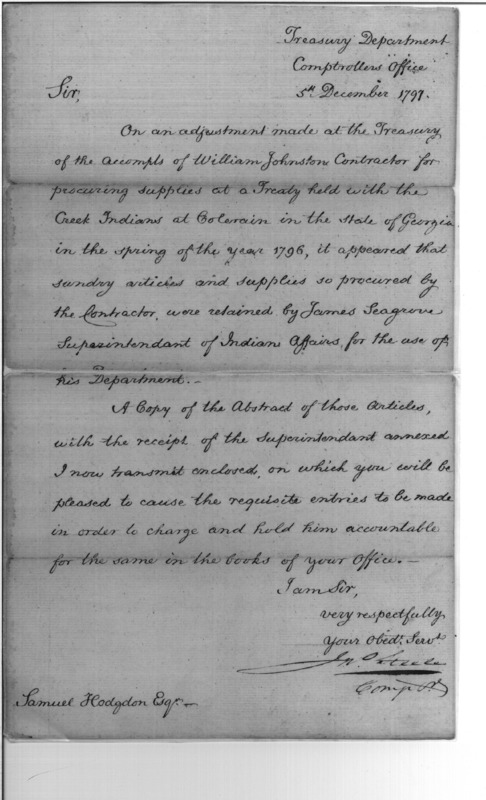 Treasury Department
Comptrollers Office
Sir,
5th December 1797.
On an adjustment made at the Treasury
of the accompts of William Johnston Contractor for
procuring supplies at a Treaty held with the
Creek Indians at Colerain in the State of Georgia
in the spring of the year 1796, it appeared that
sundry articles and supplies so procured by
the Contractor, were retained by James Seagrove
Superintendant of Indian Affairs, for the use of
his Department.-
A Copy of the Abstract of those Articles,
with the receipt of the Superintendant annexed
I now transmit enclosed, on which you will be
pleased to cause the requisite entries to be made
in order to charge and hold him accountable
for the same in the books of your Office.-
I am Sir,
very respectfully
Your Obedt. Servt.
Jn. Steele
Compt.
Samuel Hodgdon Esqr.-